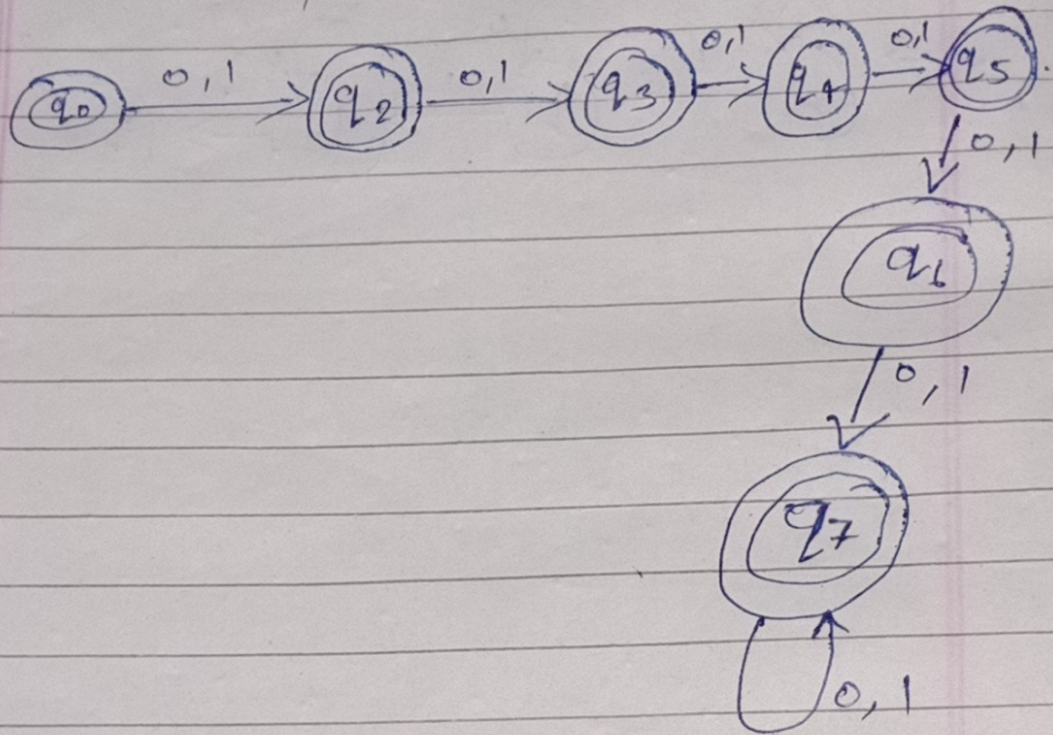 q0 0,1 q2 0,1 q3 0,1 q4 0,1 q5
0,1
q6
0,1
q7
0,1